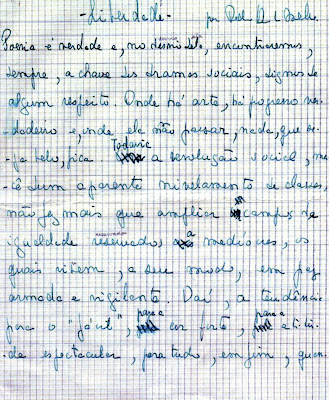 - Liberdade -
por
Poesia é verdade e, no desmo, encontraremos,
sempre, a chave dos dramas sociais, dignos de
algum respeito. Onde há arte, há progresso ver-
dadeiro e, onde ela não passar, nada, que se-
ja belo, fica. Todavia a revolução social, me-
cê dum aparente nivelamento de classes,
não fez mais que ampliar um campo de
igualdade reservado a mediocres, os
quais vivem, a seu modo, em paz
armada e vigilante. Daí, a tendência
para o "fácil", para a cor forte, para a ati-
de espectacular, para tudo, enfim, quan-